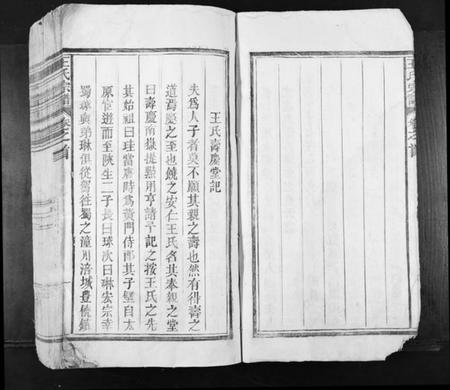 王氏宗譜
卷之首
王氏壽慶堂記
夫爲人子者莫不願其親之壽也然有得壽之
道焉慶之至也饒之安仁王氏名其奉親之堂
曰壽慶南嶽提點用亨請予記之按王氏之先
其始祖曰珪當唐時爲黃門侍郎其子壁自太
原宦遊而至陝生二子長曰球次曰琳安宗幸
蜀尋與弟琳俱從駕往蜀之潼川涪城豊
王氏宗譜
卷之首